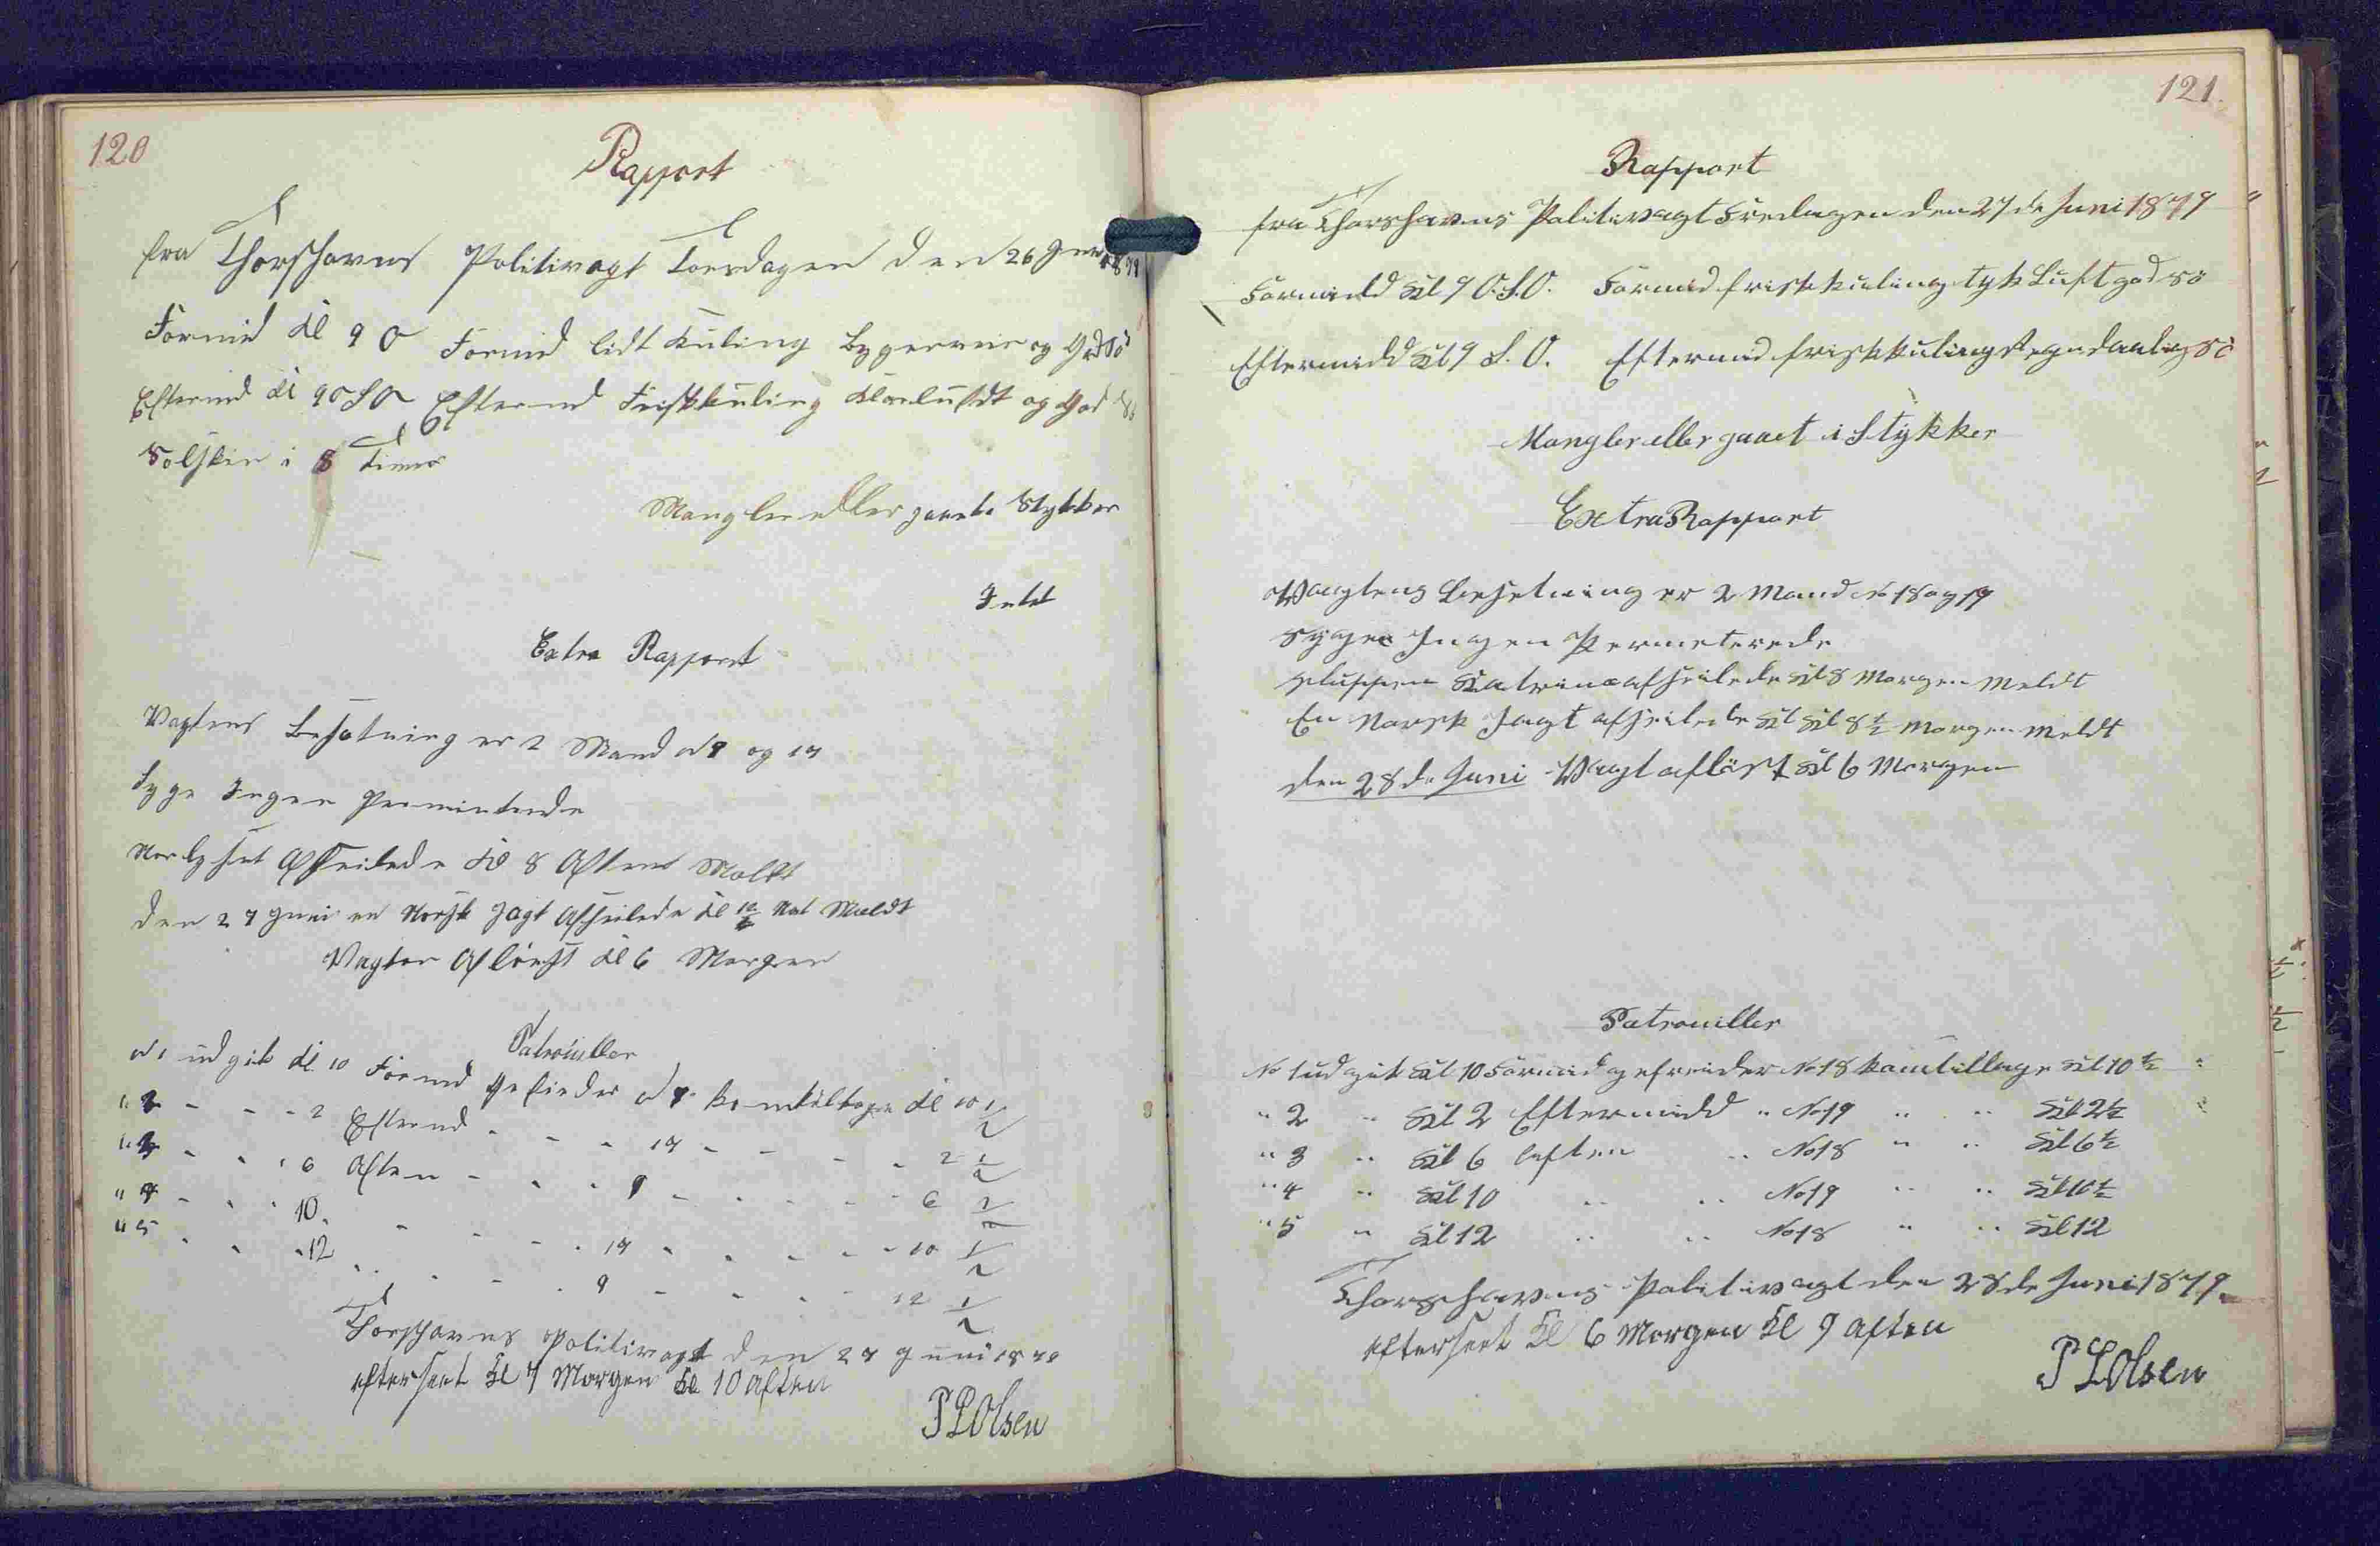 120
Rapport
fra Thorshavns Politivagt Torsdagen den 26 Juni 1879
Formid Kl 9 O Formid lidt Kuling og God Sö
Eftermd Kl 9 O S O Eftermd Friskkuling Klarluft og God Sö
Solskin i 8 Timer
Mangler eller gaaet i Stykker
Intet
Extra Rapport
Vagtens Besætning er 2 Mand № 9 og 19
Syge Ingen Permiterede
Afseilede Kl 8 Aften Meldt
den 27 Juni en Norsk Jagt Afseilede Kl Nat Meldt
Vagten Aflöest Kl 6 Morgen
Patrouiller
№ 1 udgik Kl. 10 Formd Gefreider № 9 kom tilbage Kl 10 1/2
" 2 - - - 2 Eftermd - - - 19 - - - - 2 1/2
" 3 - - " 6 Aften - - - 9 - - - - 6 1/2
" 4 - - - 10 - - - - 19 - - - - 10 1/2
" 5 - - - 12 - - - - 9 - - - - 12 1/2
Thorshavns Politivagt den 27 Juni 1879
efterseet Kl 7 Morgen Kl 10 aften
P L Olsen
121.
Rapport
fra Thorshavns Politivagt Fredagen den 27de Juni 1879
Formidd Kl 9 O.S.O. Formid friskkuling tyk Luft god Sö
Eftermidd Kl 9 S.O. Eftermid friskkuling Regn daarlig Sö
Mangler eller gaaet i Stykker
Extra Rapport
Vagtens Besetning er 2 Mand № 18 og 19
Syge Ingen Permeterede
Sluppen Katrina afseilede Kl 8 Morgen Meldt
En Norsk Jagt afseilede Kl Kl 8 1/2 Morgen Meldt
den 28de Juni Vagt aflöst Kl 6 Morgen
Patrouiller
№ 1 udgik Kl 10 Formid gefreider № 18 kom tilbage Kl 10 1/2
" 2 " Kl 2 Eftermidd " № 19 " " Kl 2 1/2
" 3 " Kl 6 aften " № 18 " " Kl 6 1/2
" 4 " Kl 10 " " № 19 " " Kl 10 1/2
" 5 " Kl 12 " " № 18 " " Kl 12
Thorshavns Politivagt den 28de Juni 1879
efterseet Kl 6 Morgen Kl 9 aften
P L Olsen